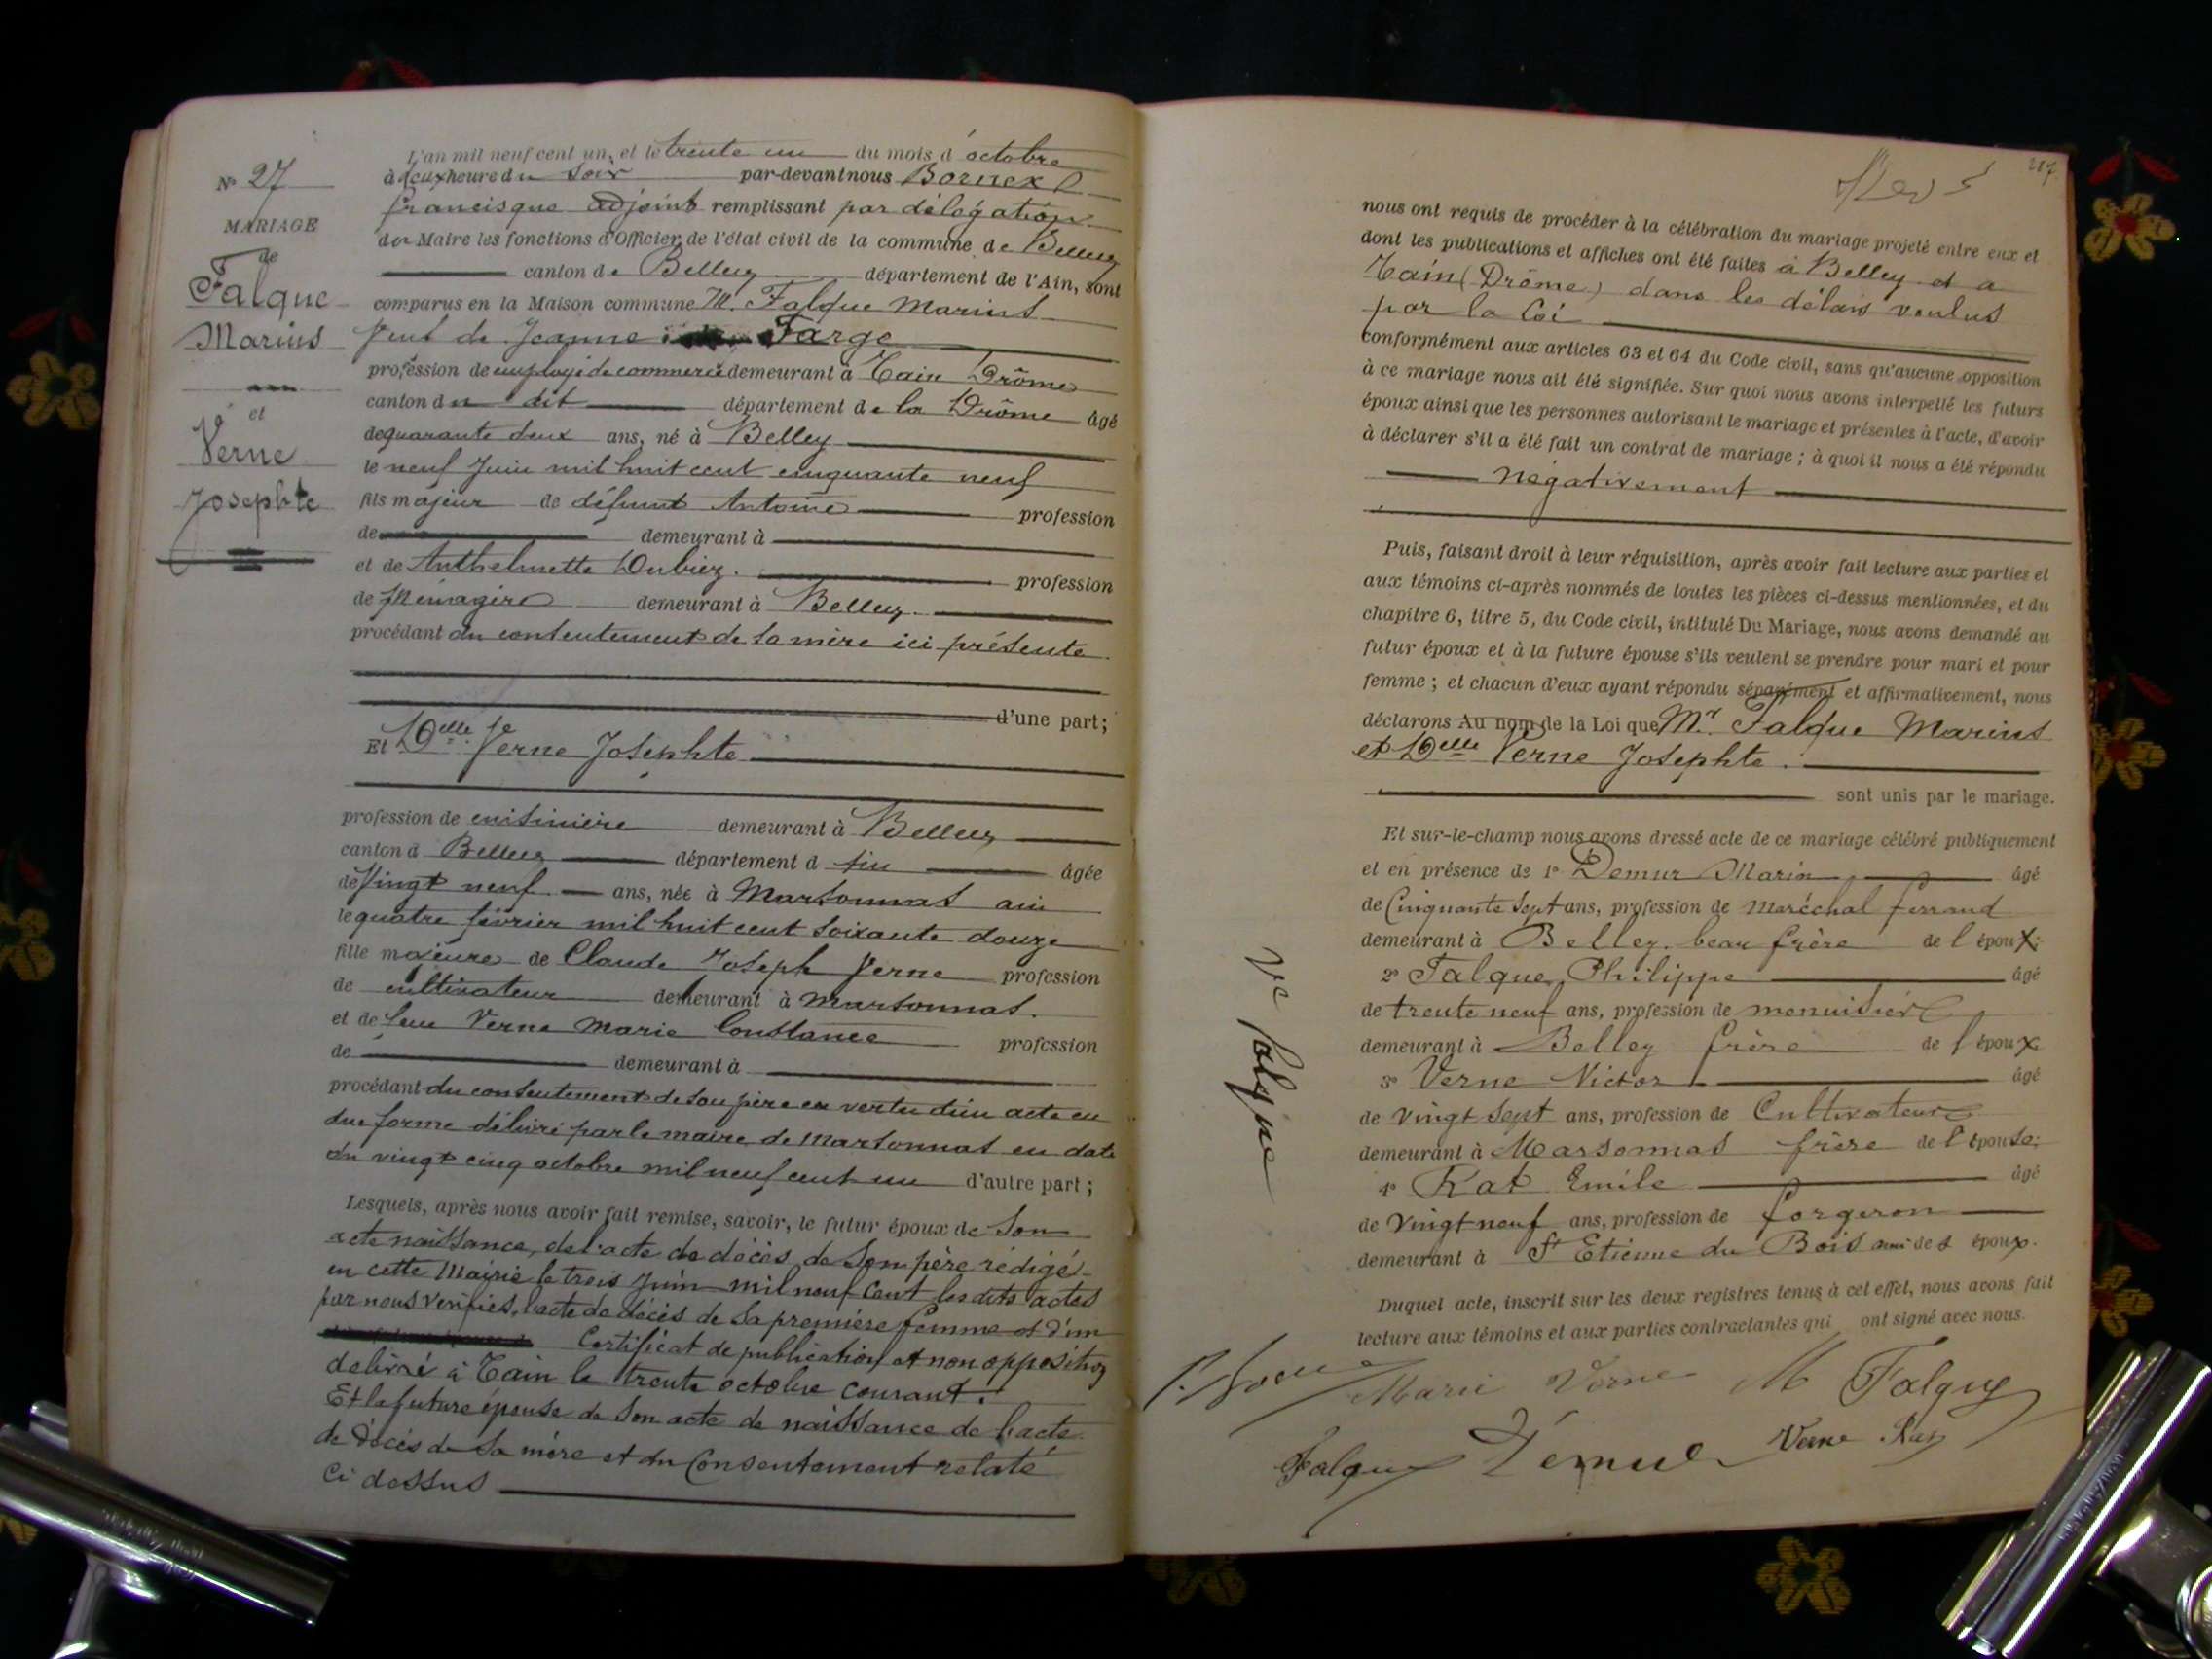 N° 27
MARIAGE
de
Falque
Marius
et
Verne
Josephte
L'an mil neuf cent un, et le trente un du mois d'octobre
à deux heure du Soir par-devant nous Bornex
francisque adjoint remplissant par délégation
du Maire les fonctions d'Officier de l'état civil de la commune de Belley
canton de Belley département de l'Ain, sont
comparus en la Maison commune M. Falque Marius
Veuf de Jeanne Farge
profession de employé de commerce demeurant à Tain Drôme
canton du dit département de la Drôme âgé
de quarante deux ans, né à Belley
le neuf Juin mil huit cent cinquante neuf
fils majeur de défunt Antoine profession
de demeurant à
et de Anthelmette Dubiez. profession
de Ménagère demeurant à Belley.
procédant du consentement de sa mère ici présente
d'une part;
Et Delle Verne Josephte
profession de cuisinière demeurant à Belley
canton d Belley département d Ain âgée
de Vingt neuf ans, née à Marsonnas ain
le quatre février mil huit cent soixante douze
fille majeure de Claude Joseph Verne profession
de cultivateur demeurant à Marsonnas.
et de feue Verne Marie Constance profession
de demeurant à
procédant du consentement de son père en vertu d'un acte en
due forme délivré par le maire de Marsonnas en date
du vingt cinq octobre mil neuf cent un d'autre part;
Lesquels, après nous avoir fait remise, savoir, le futur époux de Son
acte naissance, de l'acte de décès de Son père rédigé
en cette Mairie le trois Juin mil neuf Cent les dits actes
par nous vérifiés, l'acte de décès de Sa première femme et d'un
Certificat de publication et non opposition
délivré à Tain le trente octobre courant.
Et la future épouse de Son acte de naissance de l'acte
de décès de Sa mère et du Consentement relaté
Ci dessus
217
nous ont requis de procéder à la célébration du mariage projeté entre eux et
dont les publications et affiches ont été faites à Belley et a
Tain (Drôme) dans les délais voulus
par la Loi
conformément aux articles 63 et 64 du Code civil, sans qu'aucune opposition
à ce mariage nous ait été signifiée. Sur quoi nous avons interpellé les futurs
époux ainsi que les personnes autorisant le mariage et présentes à l'acte, d'avoir
à déclarer s'il a été fait un contrat de mariage; à quoi il nous a été répondu
négativement
Puis, faisant droit à leur réquisition, après avoir fait lecture aux parties et
aux témoins ci-après nommés de toutes les pièces ci-dessus mentionnées, et du
chapitre 6, titre 5, du Code civil, intitulé Du Mariage, nous avons demandé au
futur époux et à la future épouse s'ils veulent se prendre pour mari et pour
femme; et chacun d'eux ayant répondu séparément et affirmativement, nous
déclarons Au nom de la Loi que Mr. Falque Marius
et Delle Verne Josephte.
sont unis par le mariage.
Et sur-le-champ nous avons dressé acte de ce mariage célébré publiquement
et en présence de 1° Demur Marin âgé
de Cinquante Sept ans, profession de Maréchal ferrand
demeurant à Belley. beau frère de l'époux;
2° Falque Philippe âgé
de trente neuf ans, profession de menuisier
demeurant à Belley frère de l'époux
3° Verne Victor âgé
de vingt Sept ans, profession de Cultivateur
demeurant à Marsonnas frère de l'épouse;
4° Rat Emile âgé
de vingt neuf ans, profession de forgeron
demeurant à St Etienne du Bois ami des époux.
Duquel acte, inscrit sur les deux registres tenus à cet effet, nous avons fait
lecture aux témoins et aux parties contractantes qui ont signé avec nous.
Ve Falque
Marie Verne M Falque
Falque Démur Verne Rat